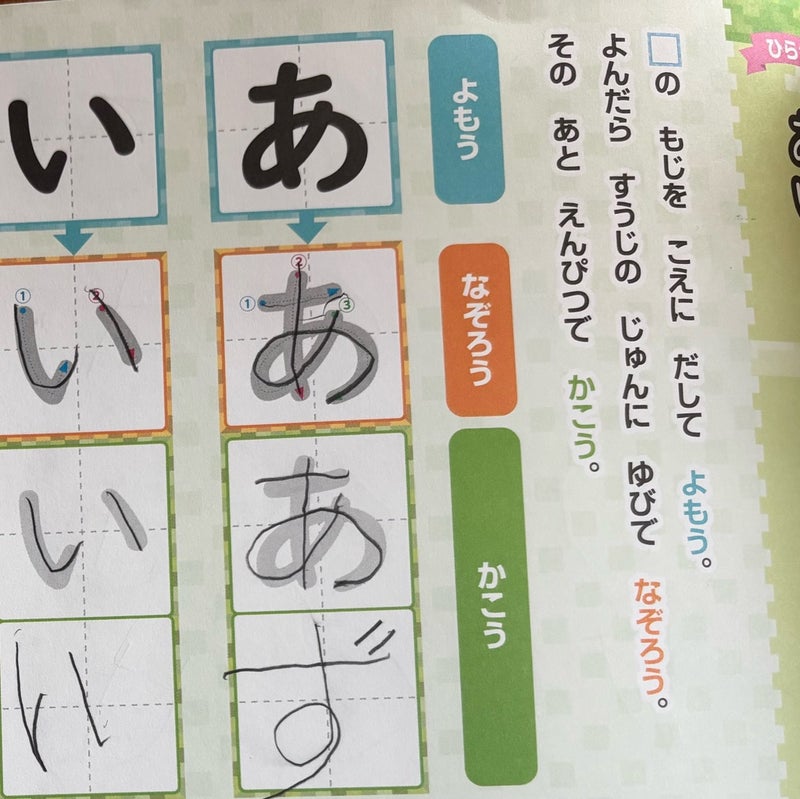 ひら
□の もじを こえに だして よもう。
よんだら すうじの じゅんに ゆびで なぞろう。
その あと えんぴつで かこう。
よもう
なぞろう
かこう
あ
① ② ③
あ
あ
ず
い
① ②
い
い
い